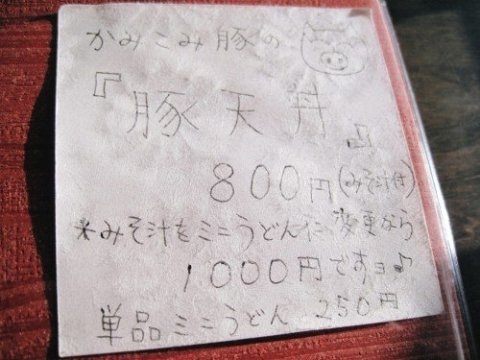 かみこみ豚の
『豚天丼』
800円(みそ汁付)
*みそ汁をミニうどんに変更なら
1000円ですョ♪
単品ミニうどん 250円